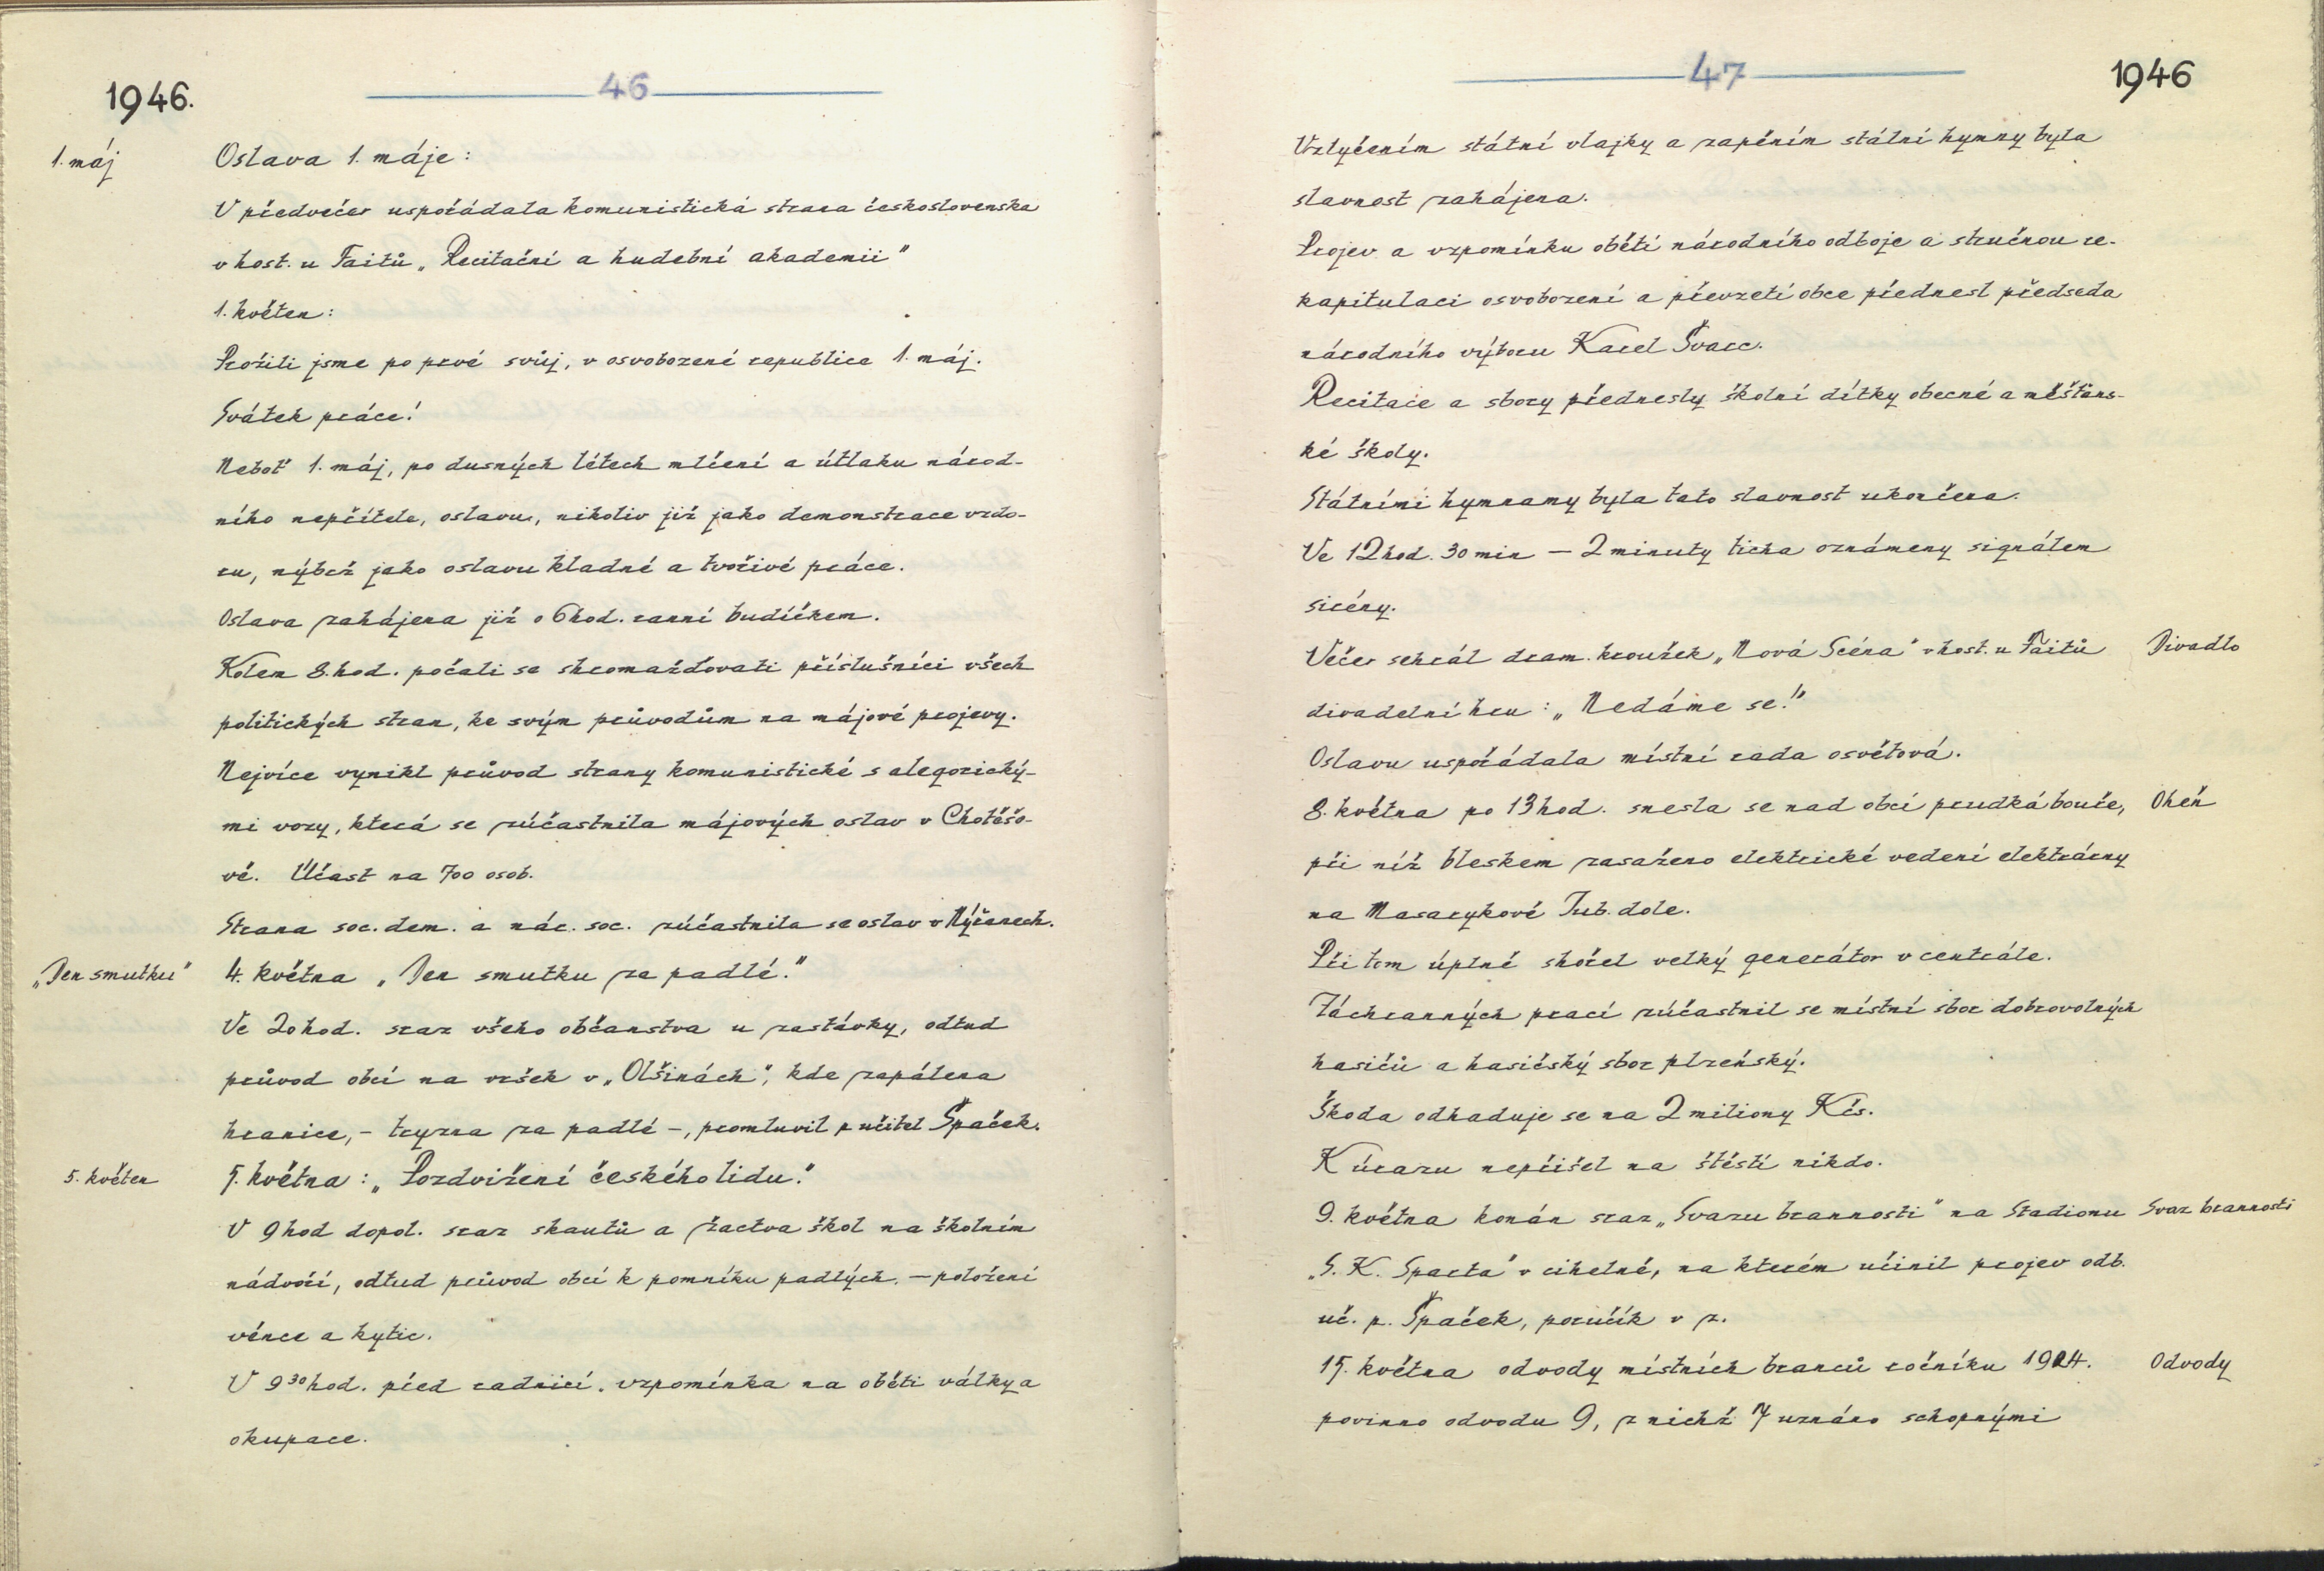 1946.
46
1. máj
Oslava 1. máje:
V předvečer uspořádala komunistická strana československa
v host. u Taitů „Recitační a hudební akademii"
1. květen:
Prožili jsme po prvé svůj, v osvobozené republice 1. máj.
Svátek práce!
Neboť 1. máj, po dusných létech mlčení a útlaku národ-
ního nepřítele, oslavu, nikoliv již jako demonstrace vzdo-
ru, nýbrž jako oslavu kladné a tvořivé práce.
Oslava zahájena již o 6 hod. ranní budíčkem.
Kolem 8. hod. počali se shromažďovati příslušníci všech
politických stran, ke svým průvodům na májové projevy.
Nejvíce vynikl průvod strany komunistické s alegorický-
mi vozy, která se zúčastnila májových oslav v Chotěšo-
vě. Účast na 700 osob.
Strana soc. dem. a nár. soc. zúčastnila se oslav v Nýřanech.
„Den smutku"
4. května „Den smutku za padlé."
Ve 20 hod. sraz všeho občanstva u zastávky, odtud
průvod obcí na vršek v „Olšinách", kde zapálena
hranice, - tryzna za padlé -, promluvil p učitel Špaček.
5. květen
5. května: „Pozdvižení českého lidu."
V 9 hod dopol. sraz skautů a žactva škol na školním
nádvoří, odtud průvod obcí k pomníku padlých. - položení
věnce a kytic.
V 9 30 hod. před radnicí. vzpomínka na oběti války a
okupace.
47
1946
Vztyčením státní vlajky a zapěním státní hymny byla
slavnost zahájena.
Projev a vzpomínku obětí národního odboje a stručnou re-
kapitulaci osvobození a převzetí obce přednesl předseda
národního výboru Karel Švarc.
Recitace a sbory přednesly školní dítky obecné a měšťans-
ké školy.
Státními hymnamy byla tato slavnost ukončena.
Ve 12 hod. 30 min - 2 minuty ticha oznámeny signálem
sirény.
Večer sehrál dram. kroužek „Nová Scéna" v host. u Taitů
Divadlo
divadelní hru: „Nedáme se!"
Oslavu uspořádala místní rada osvětová.
8. května po 13 hod. snesla se nad obcí prudká bouře,
Oheň
při níž bleskem zasaženo elektrické vedení elektrárny
na Masarykově Jub. dole.
Při tom úplně shořel velký generátor v centrále.
Záchranných prací zúčastnil se místní sbor dobrovolných
hasičů a hasičský sbor plzeňský.
Škoda odhaduje se na 2 miliony Kčs.
K úrazu nepřišel na štěstí nikdo.
9. května konán sraz „Svazu brannosti" na Stadionu
Svaz brannosti
„S. K. Sparta" v cihelně, na kterém učinil projev odb.
uč. p. Špaček, poručík v z.
15. května odvody místních branců ročníku 1924.
Odvody
povinno odvodu 9, z nichž 7 uznáno schopnými